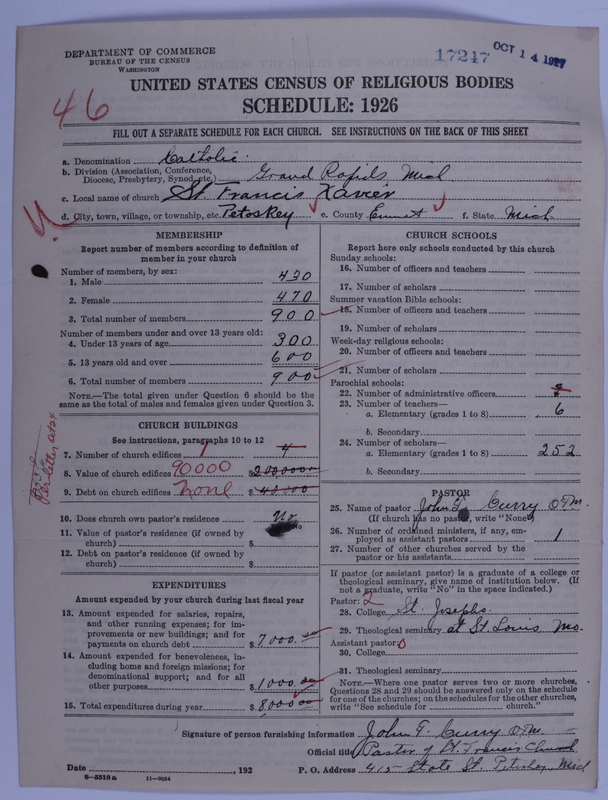 DEPARTMENT OF COMMERCE
BUREAU OF THE CENSUS
WASHINGTON
17247 OCT 14 1927
UNITED STATES CENSUS OF RELIGIOUS BODIES
SCHEDULE: 1926
46
FILL OUT A SEPARATE SCHEDULE FOR EACH CHURCH. SEE INSTRUCTIONS ON THE BACK OF THIS SHEET
a. Denomination Catholic
b. Division (Association, Conference, Diocese, Presbytery, Synod, etc.) Grand Rapids Mich
c. Local name of church St. Francis Xavier
d. City, town, village, or township, etc. Petoskey e. County Emmet f. State Mich
MEMBERSHIP
Report number of members according to definition of
member in your church
Number of members, by sex:
1. Male 430
2. Female 470
3. Total number of members 900
Number of members under and over 13 years old:
4. Under 13 years of age 300
5. 13 years old and over 600
6. Total number of members 900
NOTE.—The total given under Question 6 should be
same as the total of males and females given under Question 3.
CHURCH BUILDINGS
See instructions, paragraphs 10 to 12
7. Number of church edifices 1 4
8. Value of church edifices 90000 $200,000
9. Debt on church edifices none $40,000
10. Does church own pastor's residence No
11. Value of pastor's residence (if owned by
church) $
12. Debt on pastor's residence (if owned by
church) $
EXPENDITURES
Amount expended by your church during last fiscal year
13. Amount expended for salaries, repairs,
and other running expenses; for im-
provements or new buildings; and for
payments on church debt $7000.00
14. Amount expended for benevolences, in-
cluding home and foreign missions; for
denominational support; and for all
other purposes $1000.00
15. Total expenditures during year $8000.00
CHURCH SCHOOLS
Report here only schools conducted by this church
Sunday schools:
16. Number of officers and teachers
17. Number of scholars
Summer vacation Bible schools:
18. Number of officers and teachers
19. Number of scholars
Week-day religious schools:
20. Number of officers and teachers
21. Number of scholars
Parochial schools:
22. Number of administrative officers
23. Number of teachers—
a. Elementary (grades 1 to 8) 6
b. Secondary
24. Number of scholars—
a. Elementary (grades 1 to 8) 252
b. Secondary
PASTOR
25. Name of pastor John T. Curry OFM.
(If church has no pastor, write "None")
26. Number of ordained ministers, if any, em-
ployed as assistant pastors 1
27. Number of other churches served by the
pastor or his assistants
If pastor (or assistant pastor) is a graduate of a college or
theological seminary, give name of institution below. (If
not a graduate, write "No" in the space indicated.)
Pastor: 2
28. College St. Josephs
29. Theological seminary at St Louis Mo.
Assistant pastor: 0
30. College
31. Theological seminary
NOTE.—Where one pastor serves two or more churches,
Questions 28 and 29 should be answered only on the schedule
for one of the churches; on the schedules for the other churches,
write "See schedule for church."
Signature of person furnishing information John T. Curry OFM.
Official title Pastor of St. Francis Church
Date , 192 P. O. Address 415 State St. Petoskey, Mich
8-5518a 11-9034